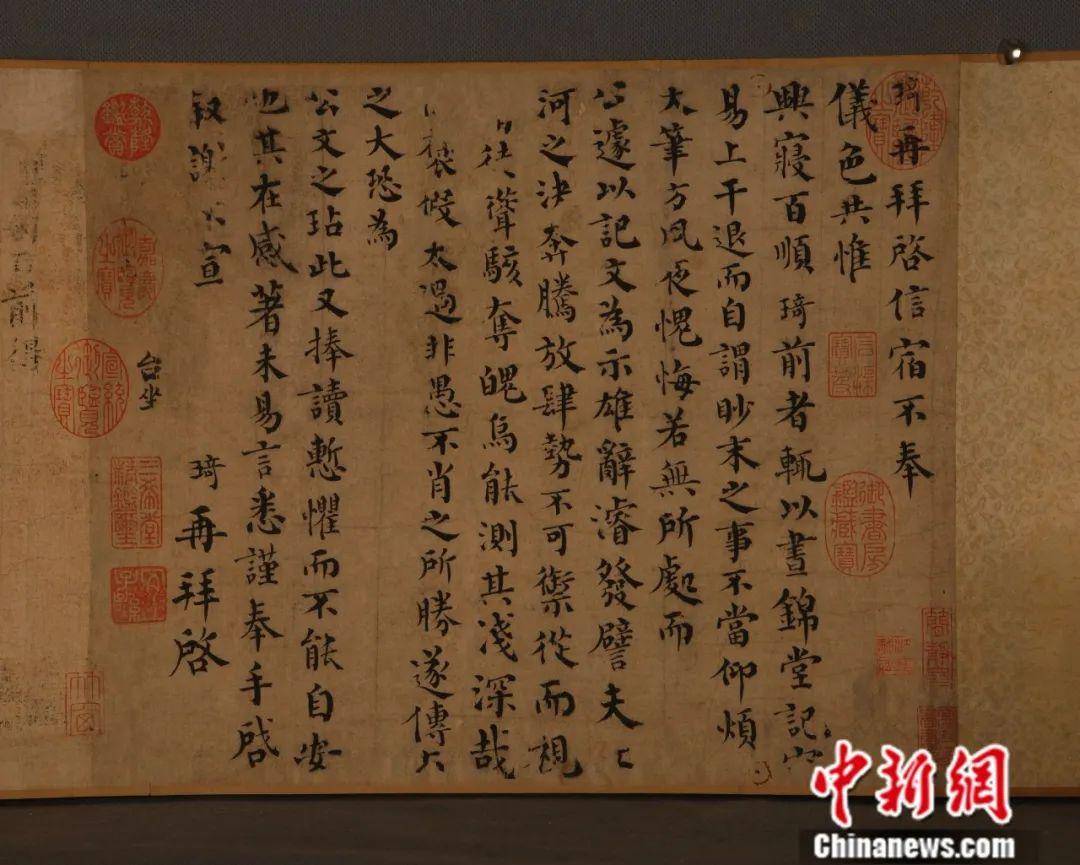 琦再拜啓信宿不奉
儀色共惟
興寢百順琦前者輒以晝錦堂記
易上干退而自謂眇末之事不當仰煩
大筆方夙夜愧悔若無所處而
公遽以記文為示雄辭濬發譬夫
河之決奔騰放肆勢不可禦從而視
徒聳駭奪魄烏能測其淺深哉
褒假太過非愚不肖之所勝遂傳
之大恐為
公文之玷此又捧讀慙懼而不能自安
也其在感著未易言悉謹奉手啓
叙謝不宣
琦再拜啓
台坐
中新網
Chinanews.com